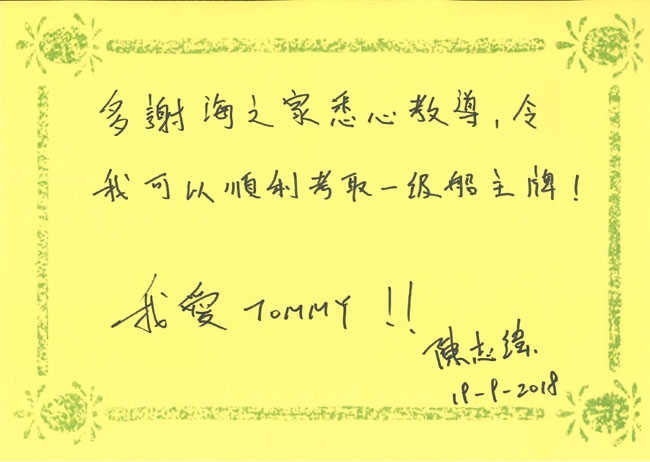 多謝海之家悉心教導，令
我可以順利考取一级船主牌！
我愛 TOMMY !!
陳志緯
19-9-2018